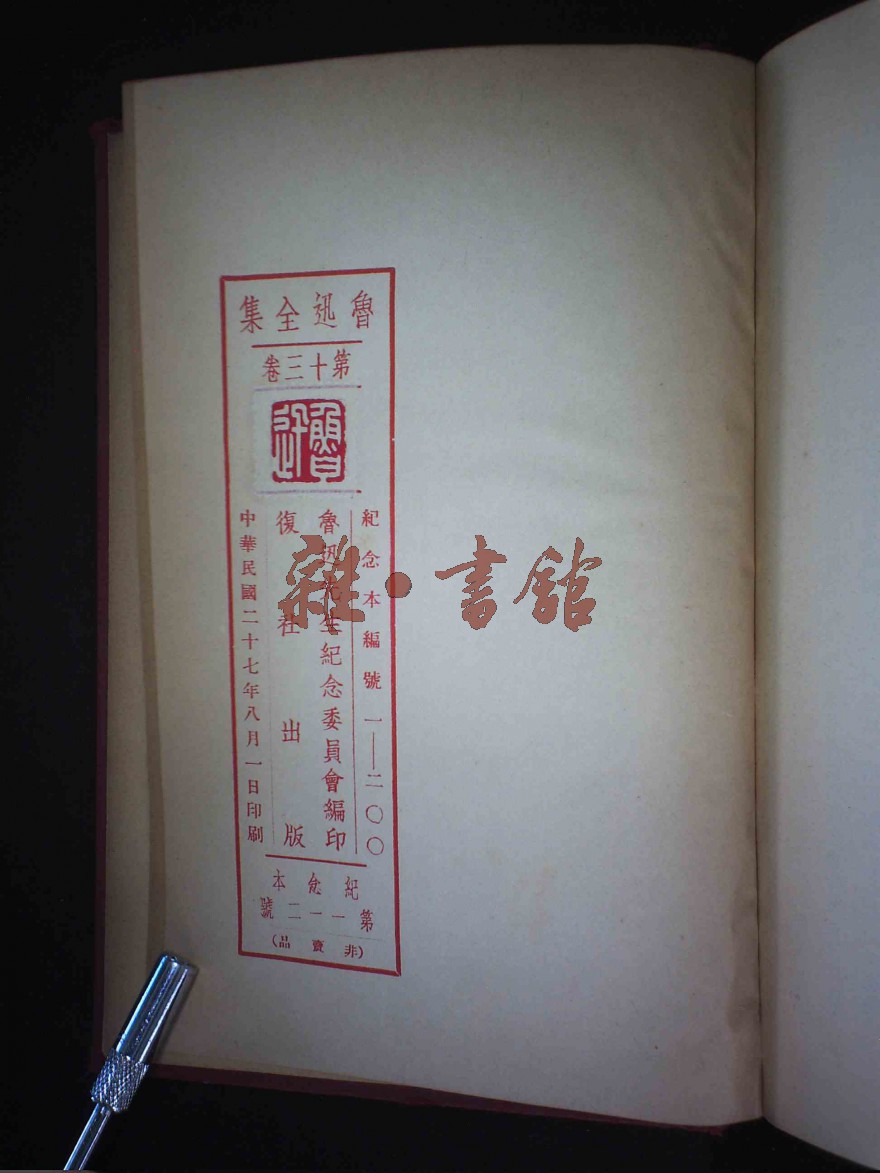 魯迅全集
第十三卷
魯迅
紀念本編號一——二〇〇
魯迅先生紀念委員會編印
復社出版
中華民國二十七年八月一日印刷
紀念本
第一一二號
(非賣品)
雜·書館